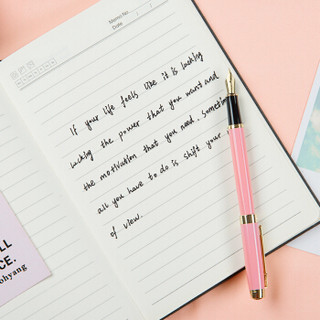 Memo No.
Date / /
If your life feels like it is lackly
lackly the power that you want and
the motivation that you need. Sometim
all you have to do is shift your
of view.
LL
CE.
ohyang